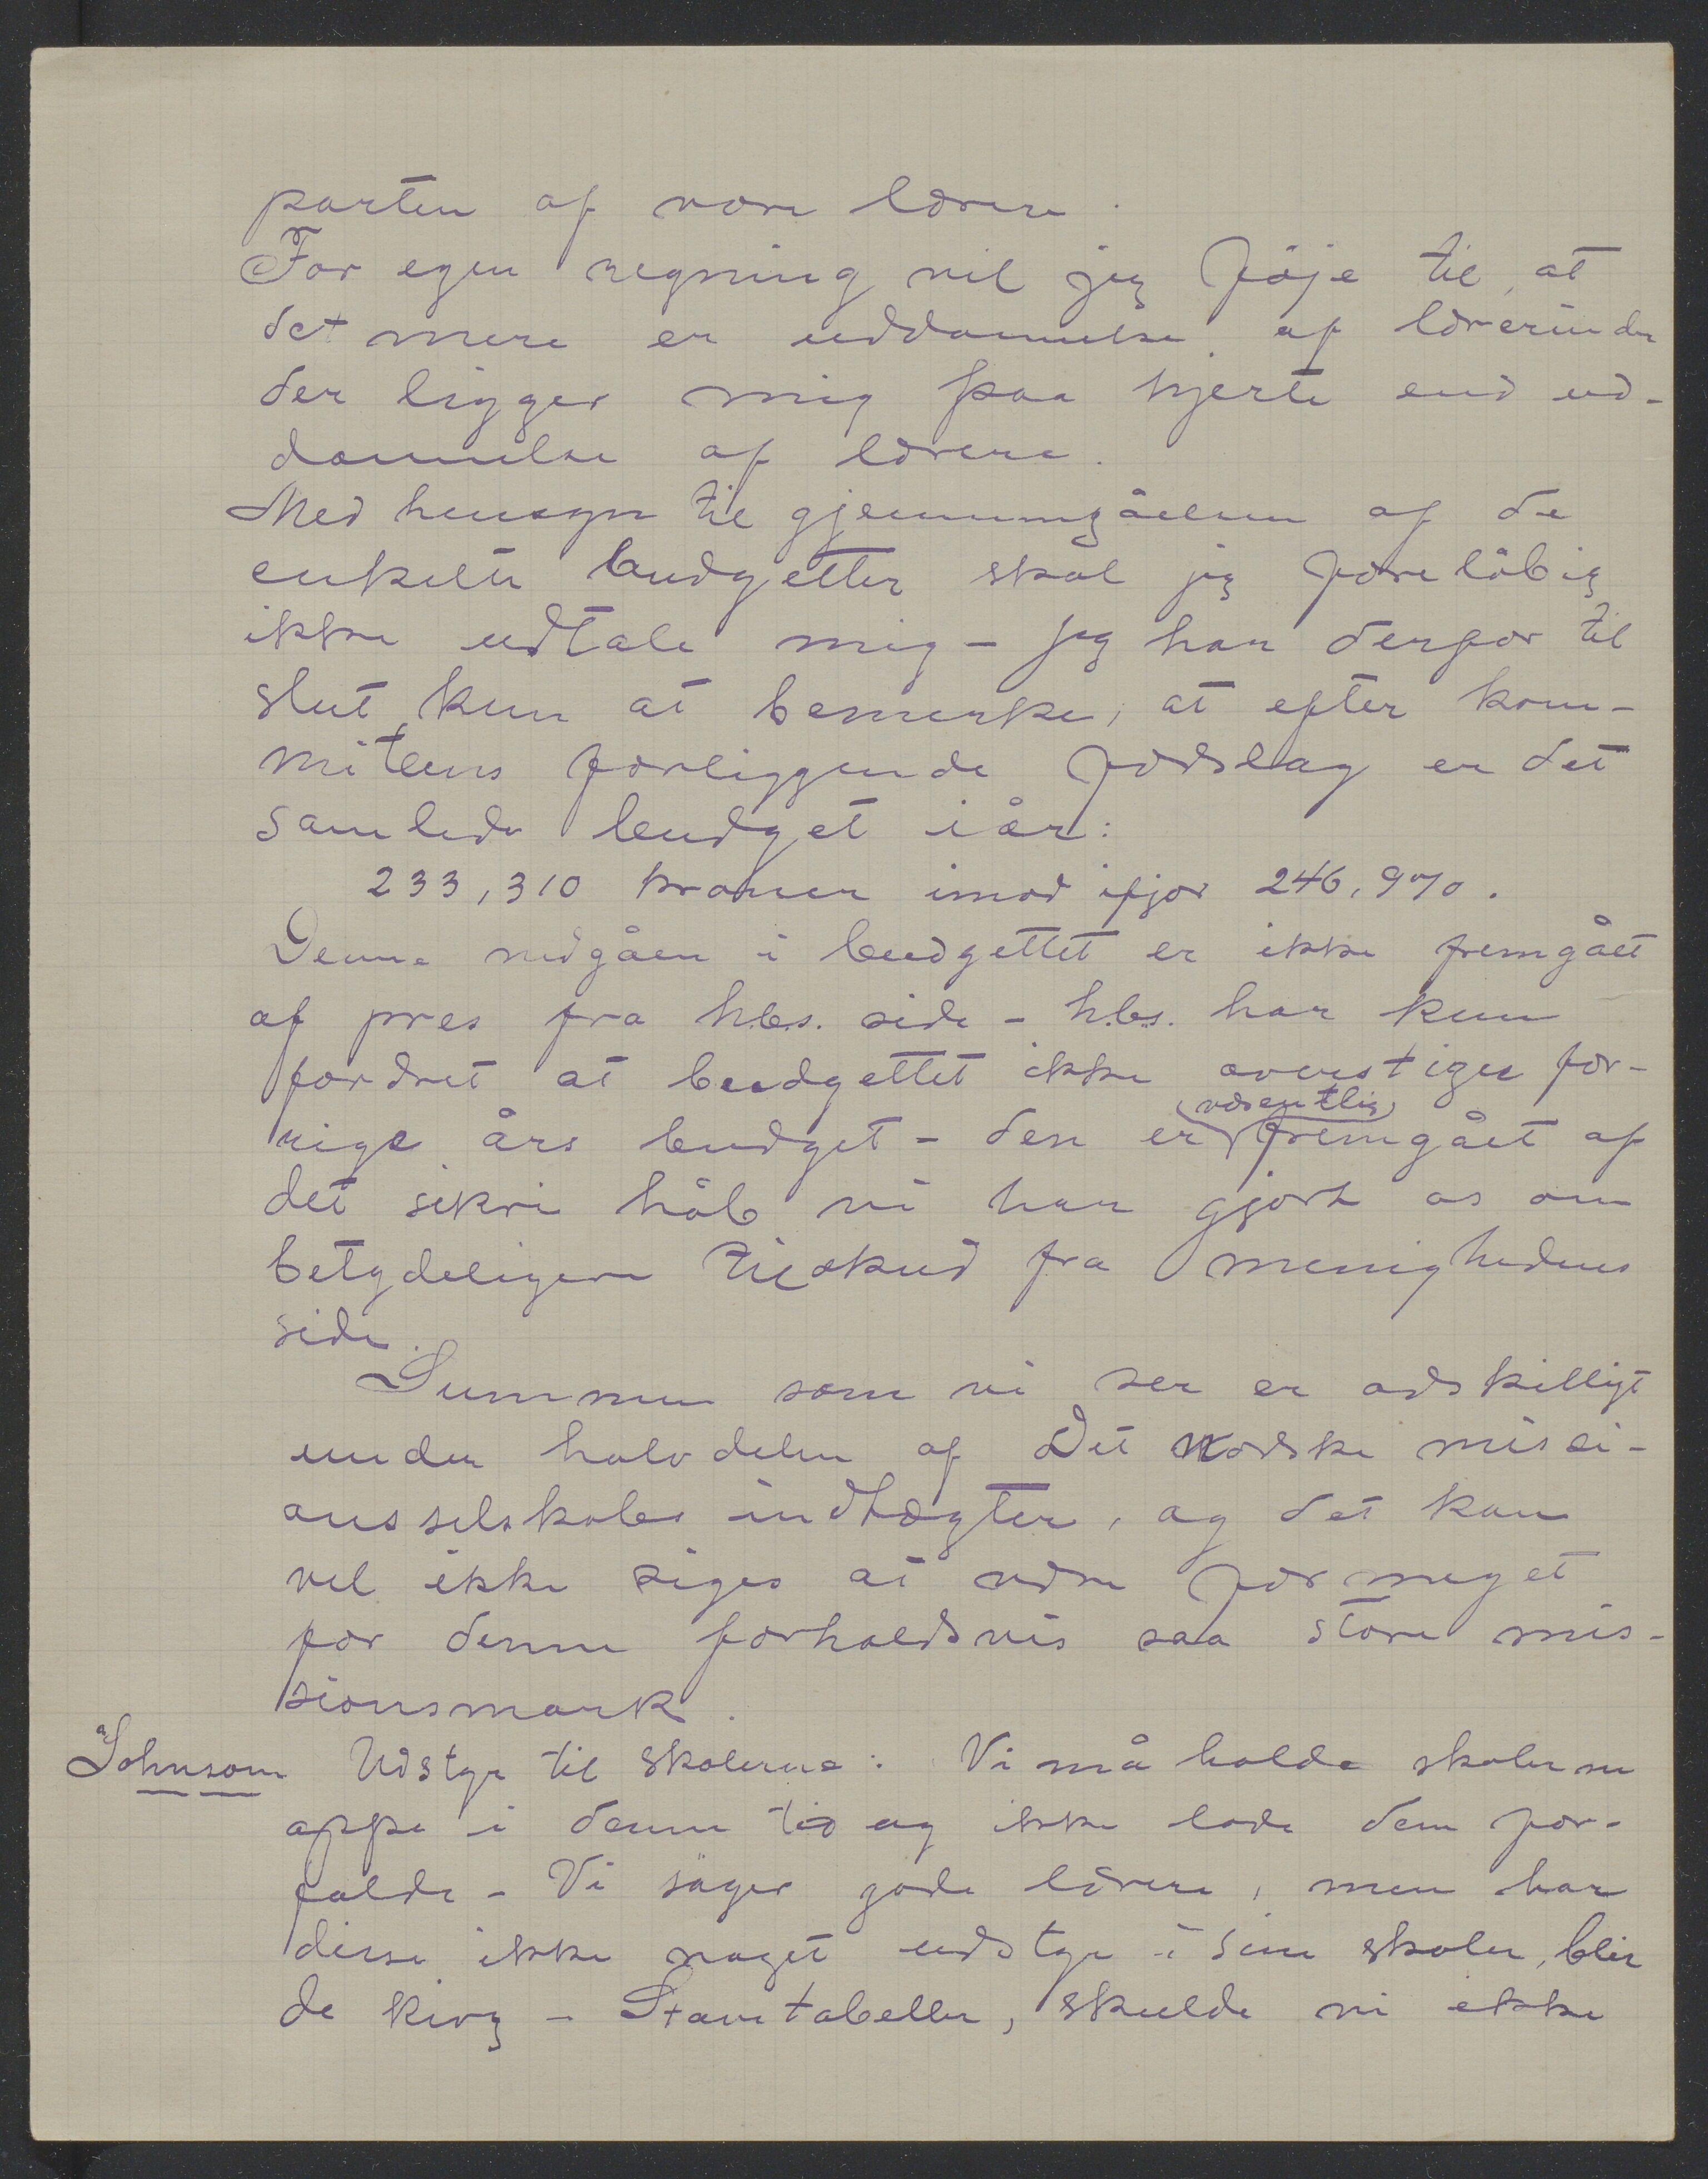 parten af vore lærere.
For egen regning vil jeg föje til, at
det mere er uddannelse af lærerinder
der ligger mig paa hjerte end ud-
dannelse af lærere.
Med hensyn til gjennemgåelsen af de
enkelte budgetter skal jeg foreløbig
ikke udtale mig – jeg har derfor til
slut kun at bemerke, at efter kom-
miteens forliggende forslag er det
samlede budget iår:
233,310 kroner imod ifjor 246,970.
Denne nedgåen i budgettet er ikke fremgået
af pres fra h.b.s. side – h.b.s. har kun
fordret at budgettet ikke overstiger for-
rige års budget – den er væsentlig fremgået af
det sikre håb vi har gjort os om
betydeligere tilskud fra menighedens
side.
Summen som vi ser er adskilligt
under halvdelen af Det norske missi-
onsselskabs indtægter, og det kan
vel ikke siges at være for meget
for denne forholdsvis saa store mis-
sionsmark.
Johnson Udstyr til skolerne: Vi må holde skolerne
oppe i denne tid og ikke lade dem for-
falde – Vi søger gode lærere, men har
disse ikke noget udstyr i sine skoler, blir
de kivy – Stavetabeller, skulde vi ikke